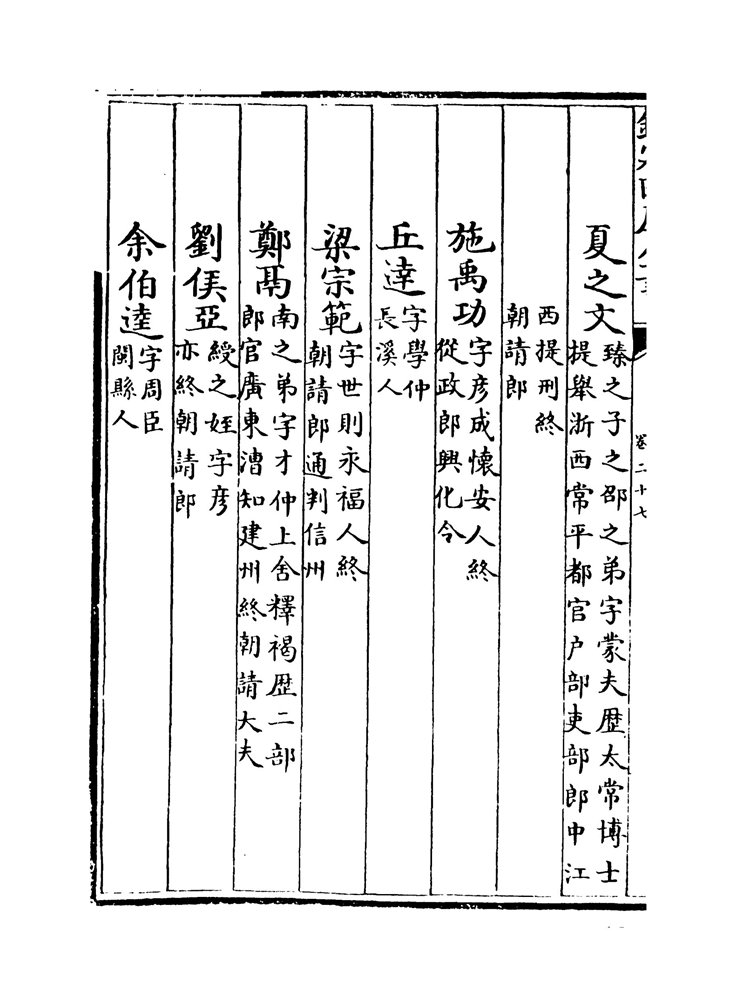 卷二十七
夏之文
臻之子之邵之弟字蒙夫歴太常博士
提舉浙西常平都官户部吏部郎中江
西提刑終
朝請郎
施禹功
字彦成懷安人終
從政郎興化令
丘達
字學仲
長溪人
梁宗範
字世則永福人終
朝請郎通判信州
鄭鬲
南之弟字才仲上舍釋褐歴二部
郎官廣東漕知建州終朝請大夫
劉俟亞
綬之姪字彦
亦終朝請郎
余伯逵
字周臣
閩縣人